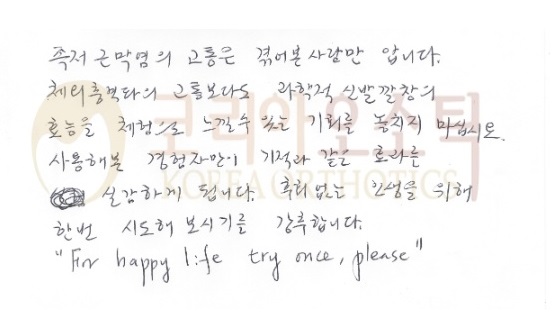 족저 근막염의 고통은 겪어본 사람만 압니다.
체외충격파의 고통보다도 과학적 신발깔창의
효능을 체험으로 느낄수 있는 기회를 놓치지 마십시오.
사용해본 경험자만이 기적과 같은 효과를
실감하게 됩니다. 후회없는 인생을 위해
한번 시도해 보시기를 강추합니다.
"For happy life try once, please"
코리아오소틱
KOREA ORTHOTICS